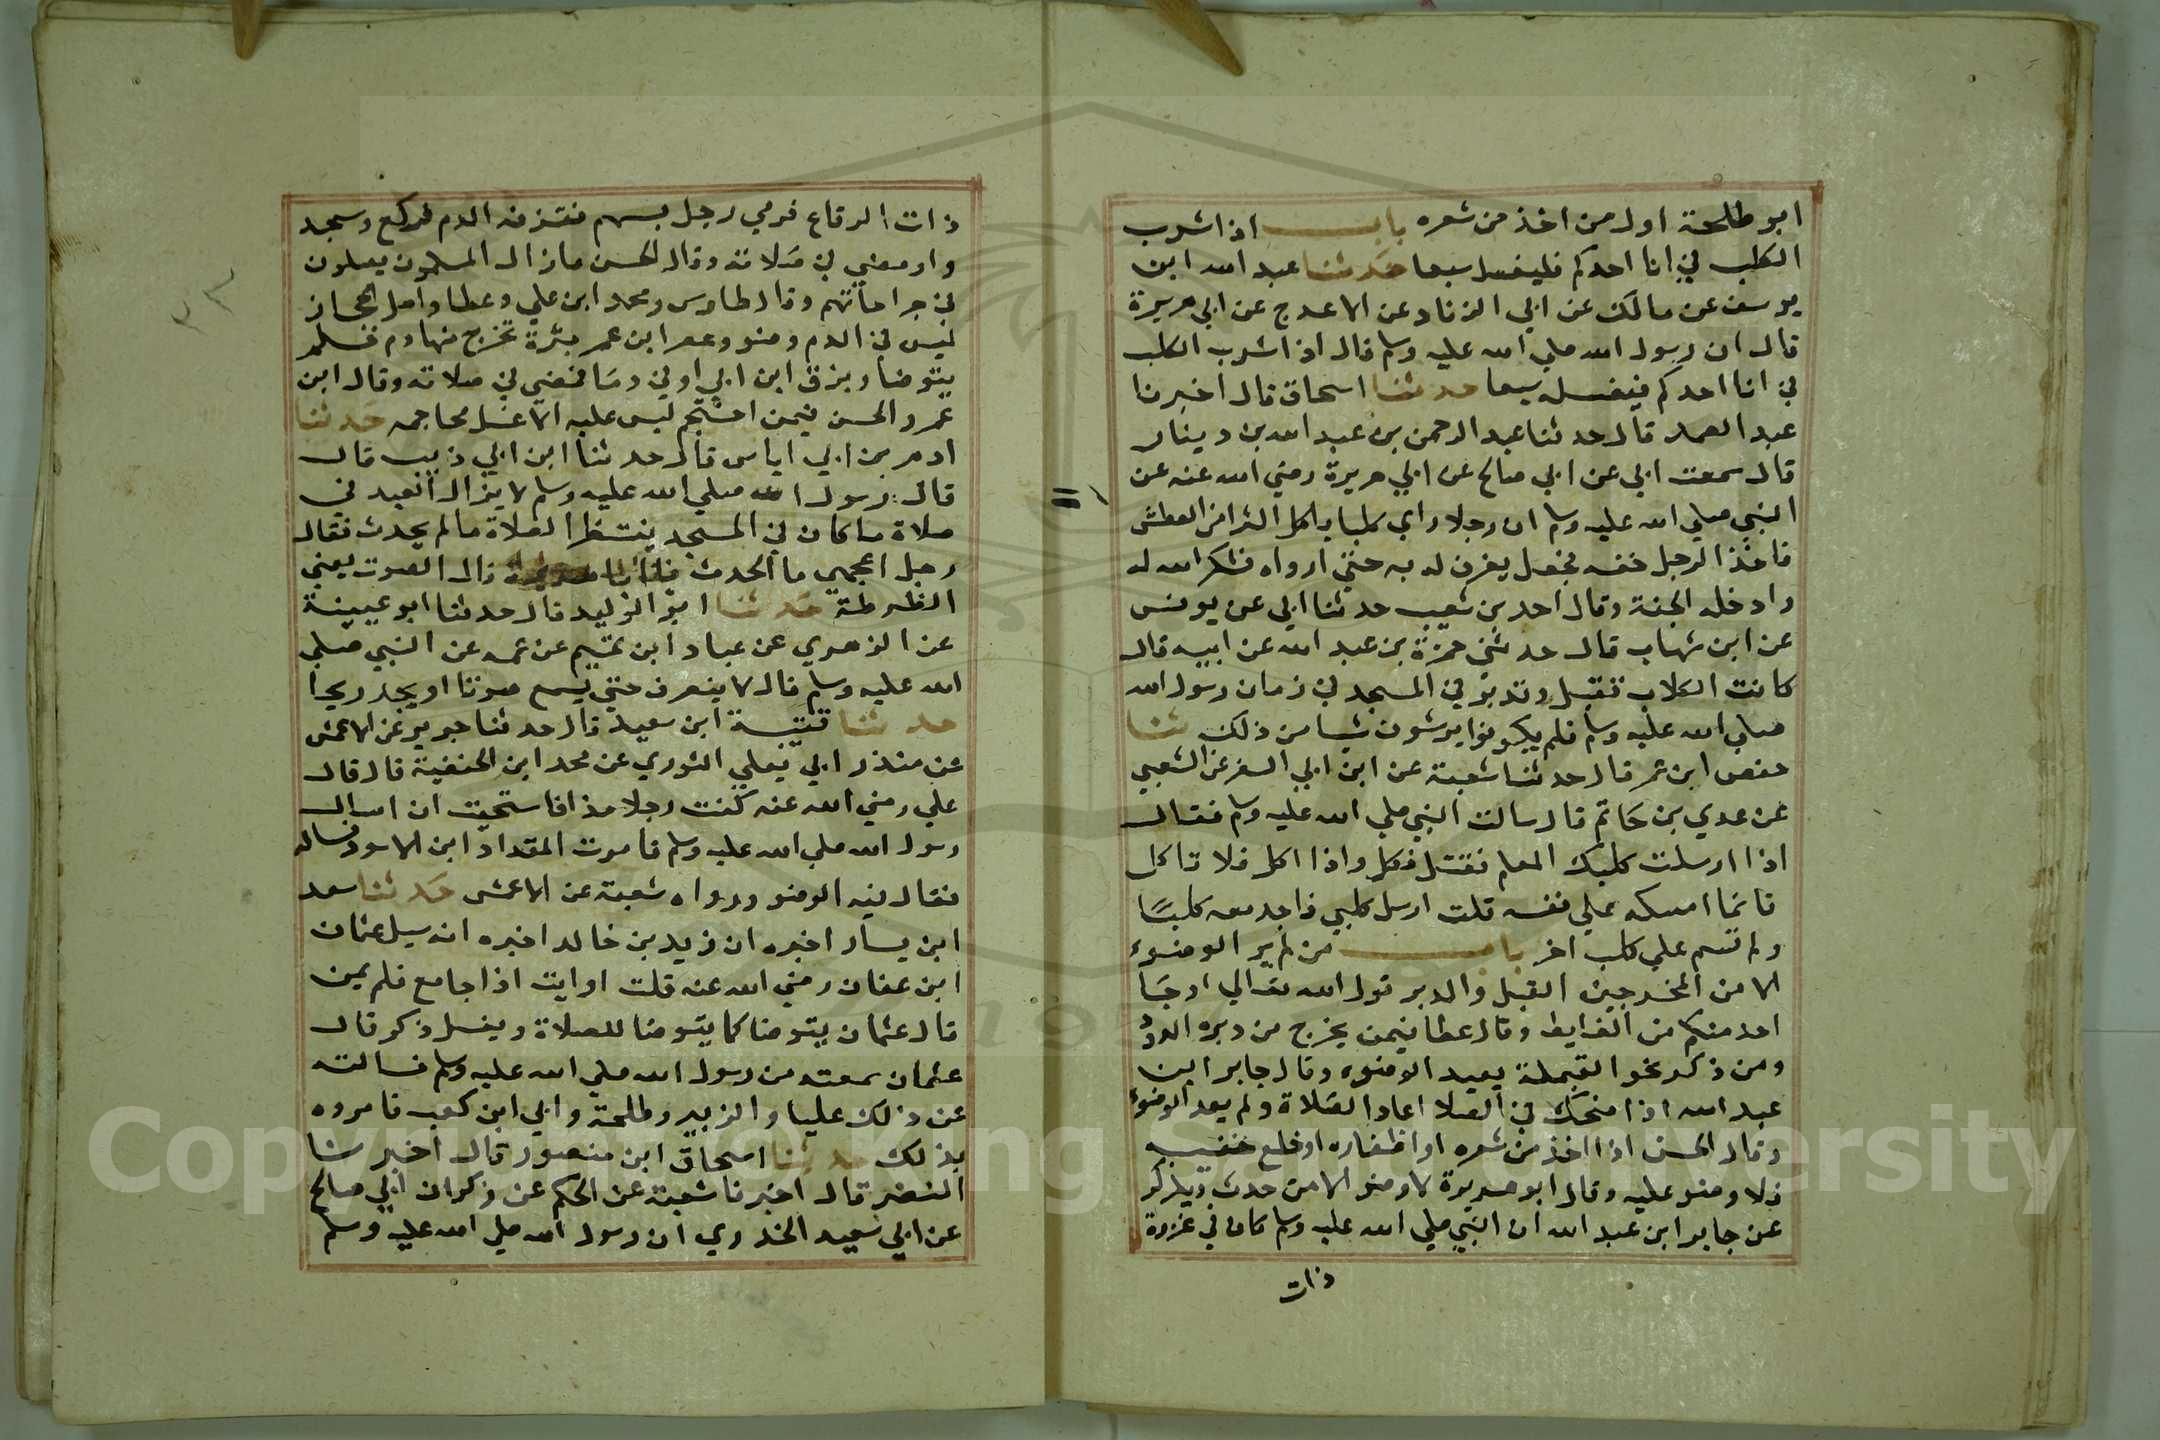 ابو طلحة اول من اخذ من شعره باب اذا شرب
الكلب في انا احدكم فليغسل سبعا حدثنا عبد الله ابن
يوسف عن مالك عن ابي الزناد عن الاعرج عن ابي هريرة
قال ان رسول الله صلي الله عليه وسلم قال اذا شرب الكلب
في انا احدكم فيغسله سبعا حدثنا اسحاق قال اخبرنا
عبد الصمد قال حدثنا عبد الرحمن بن عبد الله بن دينار
قال سمعت ابي عن ابي صالح عن ابي هريرة رضي الله عنه عن
النبي صلي الله عليه وسلم ان رجلا راي كلبا ياكل الثرا من العطش
فاخذ الرجل خفه فجعل يغرف له به حتي ارواه فشكر الله له
وادخله الجنة وقال احد بن شعيب حدثنا ابي عن يونس
عن ابن شهاب قال حدثني حمزة بن عبد الله عن ابيه قال
كانت الكلاب تقبل وتدبر في المسجد في زمان رسول الله
صلي الله عليه وسلم فلم يكونوا يرشون شيا من ذلك ثنا
حفص ابن عمر قال حدثنا شعبة عن ابن ابي السفر عن الشعبي
عن عدي بن حاتم قال سالت النبي صلي الله عليه وسلم فقال
اذا ارسلت كلبك المعلم فقتل فكل واذا اكل فلا تاكل
فانما امسكه علي نفسه قلت ارسل كلبي فاجد معه كلبًا
ولم تسم علي كلب اخر باب من لم ير الوضوء
الا من المخرجين القبل والدبر قول الله تعالي او جا
احد منكم من الغايط وقال عطا فيمن يخرج من دبره الدود
ومن ذكر نحو القملة يعيد الوضوء وقال جابر ابن
عبد الله اذا ضحك في الصلا اعاد الصلاة ولم يعد الوضوء
وقال الحسن اذا اخذ من شعره او اظفاره او خلع خفيه
فلا وضو عليه وقال ابو هريرة لا وضو الا من حدث ويذكر
عن جابر ابن عبد الله ان النبي صلي الله عليه وسلم كان في غزوة
ذات
ذات الرقاع فرمي رجل بسهم فنزفه الدم فركع وسجد
ومضي في صلاته وقال الحسن ما زال المسلمون يصلون
في جراحاتهم وقال طاوس ومحمد ابن علي وعطا واهل الحجاز
ليس في الدم وضو وعصر ابن عمر بثرة تخرج منها دم فلم
يتوضا وبزق ابن ابي اوفي دما فمضي في صلاته وقال ابن
عمر والحسن فيمن احتجم ليس عليه الا غسل محاجمه حدثنا
ادم بن ابي اياس قال حدثنا ابن ابي ذيب قال
قال رسول الله صلي الله عليه وسلم لا يزال العبد في
صلاة ما كان في المسجد ينتظر الصلاة ما لم يحدث فقال
رجل اعجمي ما الحدث قال الصوت يعني
الظرطة حدثنا ابو الوليد قال حدثنا ابو عيينة
عن الزهري عن عباد ابن تميم عن عمه عن النبي صلي
الله عليه وسلم قال لا ينصرف حتي يسمع صوتا او يجد ريحا
حدثنا قتيبة ابن سعيد قال حدثنا جرير عن الاعمش
عن منذر ابي يعلي الثوري عن محمد ابن الحنفية قال قال
علي رضي الله عنه كنت رجلا مذا فاستحيت ان اسال
رسول الله صلي الله عليه وسلم فامرت المقداد ابن الاسود فساله
فقال فيه الوضو ورواه شعبة عن الاعمش حدثنا سعد
ابن يسار اخبره ان زيد بن خالد اخبره انه سيل عثمان
ابن عفان رضي الله عنه قلت ارايت اذا جامع فلم يمن
قال عثمان يتوضا كما يتوضا للصلاة ويغسل ذكره قال
عثمان سمعته من رسول الله صلي الله عليه وسلم فسالته
عن ذلك عليا والزبير وطلحة وابي ابن كعب فامروه
بذلك حدثنا اسحاق ابن منصور قال اخبرنا
النضر قال اخبرنا شعبة عن الحكم عن ذكوان ابي صالح
عن ابي سعيد الخدري ان رسول الله صلي الله عليه وسلم
٢٣
Copyright © King Saud University